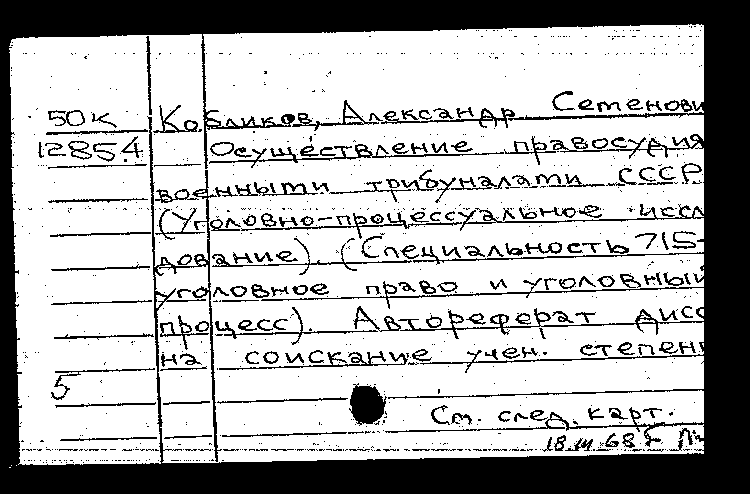 50к Кобликов, Александр Семенови
12854 Осуществление правосудия
военными трибуналами СССР
(Уголовно-процессуальное иссл
дование). (Специальность 715-
уголовное право и уголовный
процесс). Автореферат дисс
на соискание учен. степен
5
См. след. карт.
18.III.68